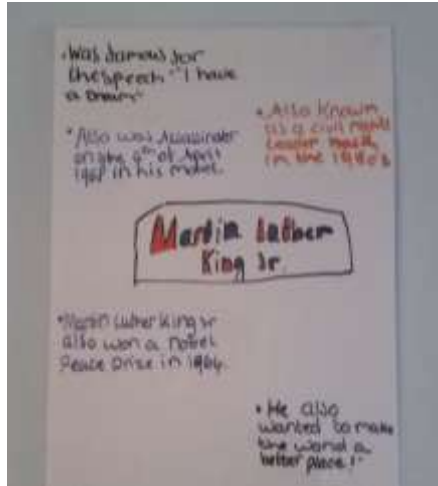 • Was famous for
the speech "I have
a Dream"
• Also Known
as a civil rights
Leader back
in the 1980s
• Also was Assassinated
on the 4th of April
1968 in his motel.
Martin Luther
King Jr.
• Martin Luther King Jr
also won a nobel
Peace Prize in 1964.
• He also
wanted to make
the world a
better place!